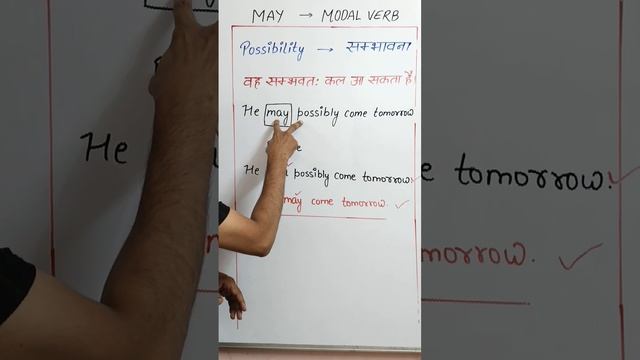 MAY → MODAL VERB
Possibility → सम्भावना
वह सम्भवतः कल आ सकता है।
He may possibly come tomorrow
He possibly come tomorrow. ✓
may come tomorrow. ✓